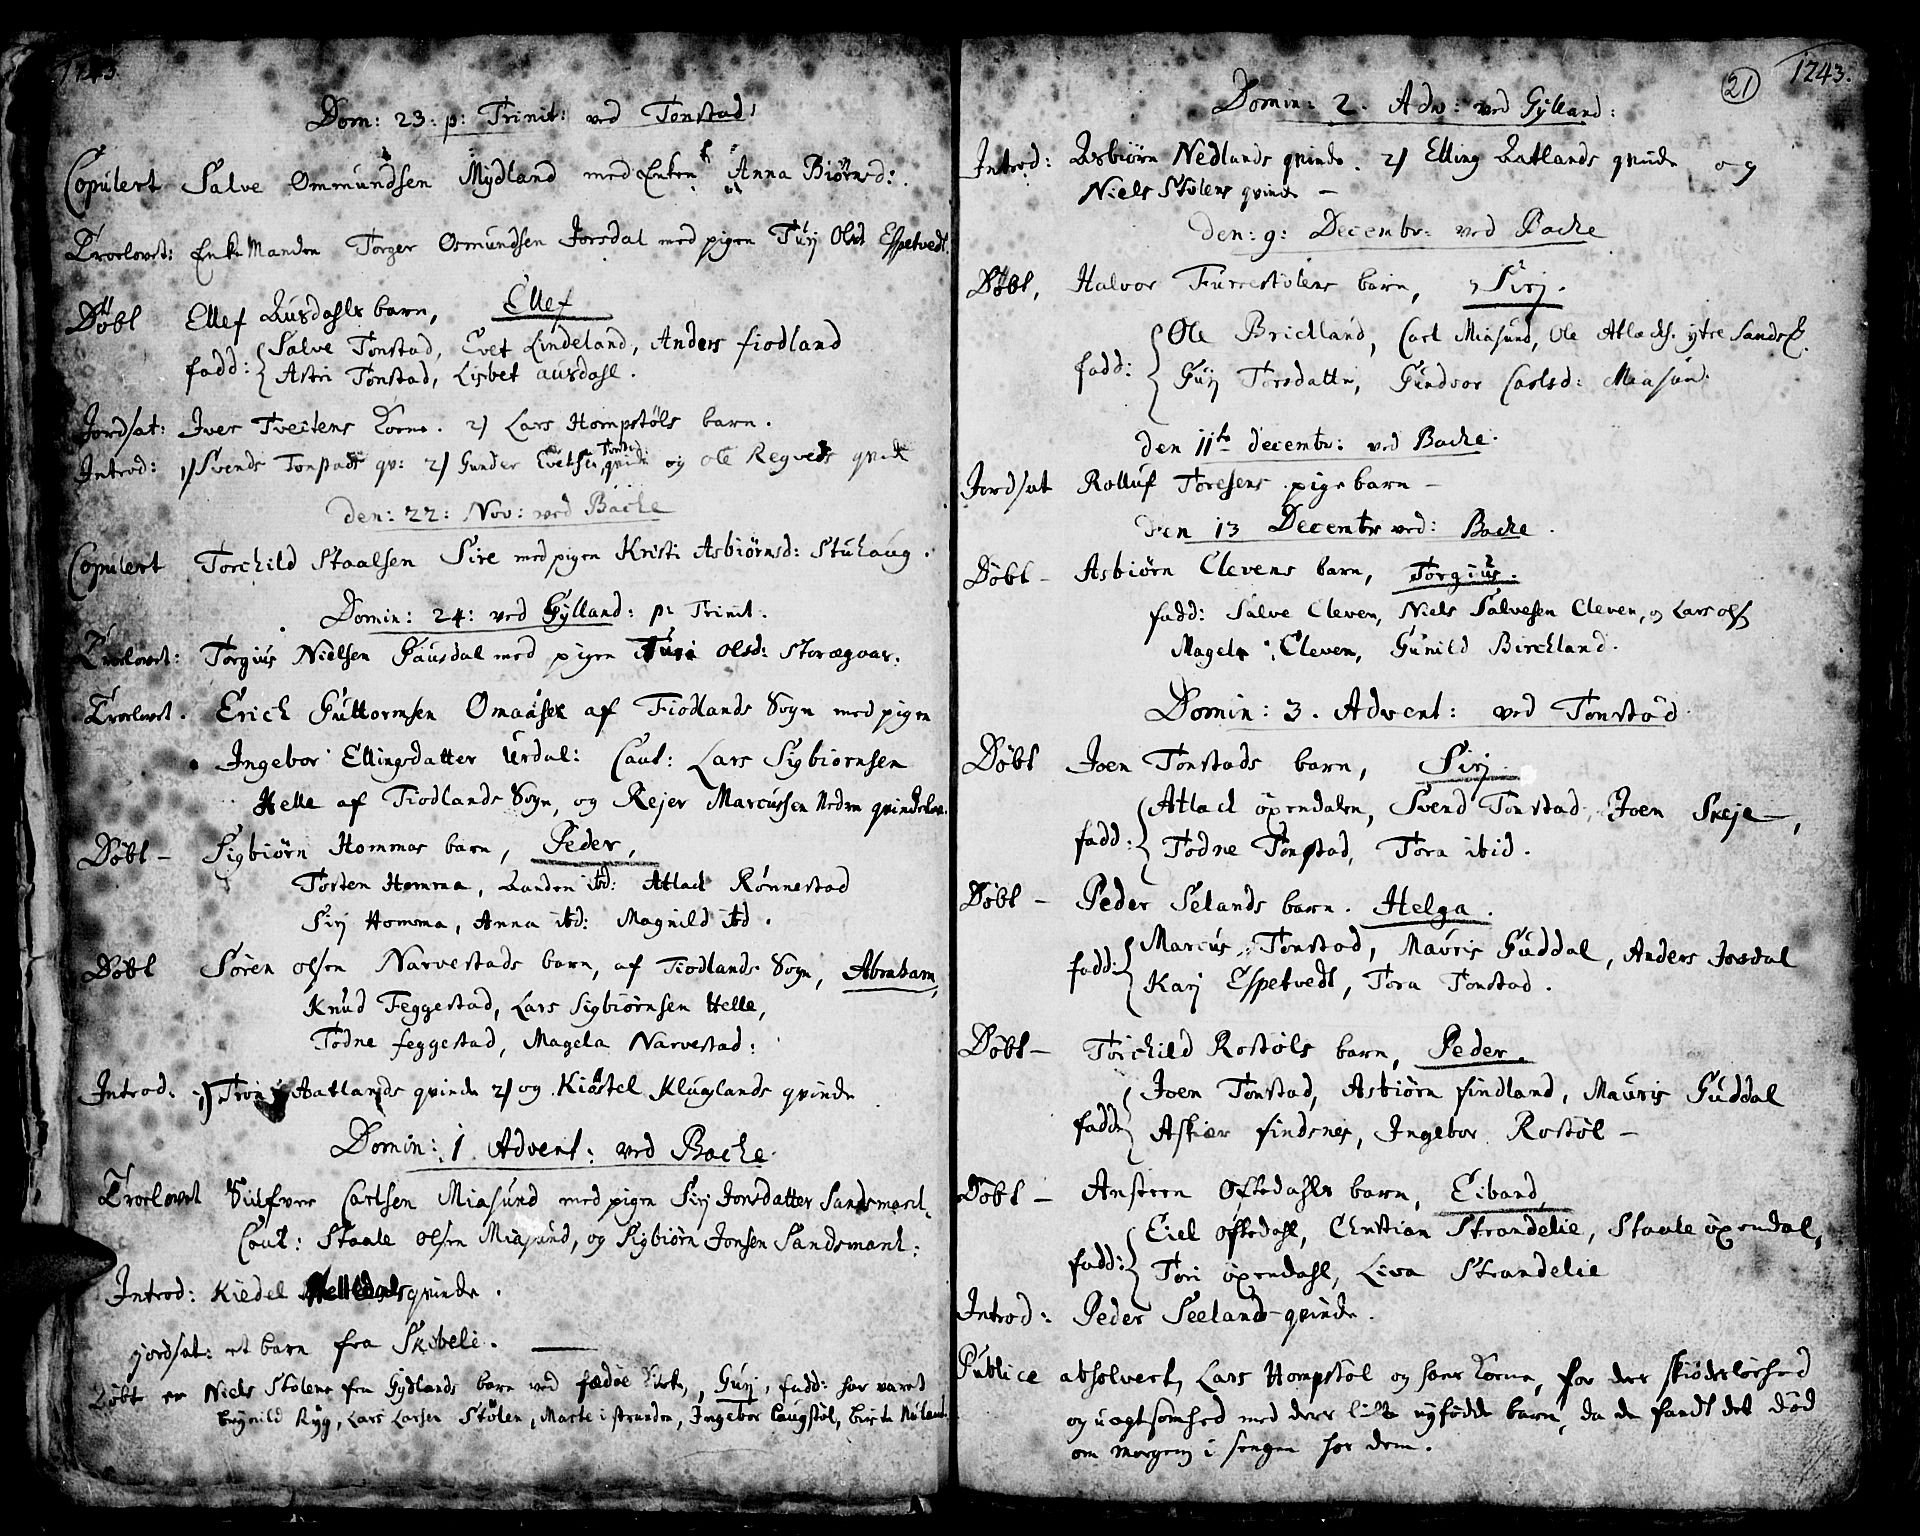 1743
Dom: 23. p: Trinit: ved Tonstad:
Copulert Salve Ommundsen Mydland med Enken Anna Biörnsd:.
Troelovet: Enke Manden Torger Osmundsen Josdal med pigen Turj Olsd Espetvedt.
Döbt Ellef Ausdahls barn, Ellef
fadd: Salve Tonstad, Evet Lindeland, Anders fiodland
Astri Tonstad, Lisbet ausdahl.
Jordsat: Iver Tveitens Kone. 2) Lars Hompstöls barn.
Introd: 1) Svends Tonstads qv: 2) Gunder Evetsen qvinde og Ole Regveds qvinde
den: 22: Nov: ved Backe
Copulert Torchild Staalsen Sire med pigen Kristi Asbiörnsd: Stuhaug.
Domin: 24: ved Gylland: p: Trinit.
Troelovet: Torgius Nielsen Gausdal med pigen Turi Olsd: Storægvar.
Troelovet. Erich Guttormsen Omaaser af Fiodlands Sogn med pigen
Ingebor Ellingsdatter Urdal: Caut: Lars Sigbiornsen
Helle af Fiodlands Sogn, og Rejer Marcussen Neden
Döbt – Sigbiörn Hommas barn, Peder,
Tosten Homma, Aanden ibd: Atlach Rönnestad
Sirj Homma, Anna ibd: Magnild ibd.
Döbt Sören olsen Narvestads barn, af Fiodlands Sogn, Abraham,
Knud Feggestad, Lars Sigbiörnsen Helle,
Todne feggestad, Magela Narvestad:
Introd: 1) Tron Aatlands qvinde 2) og Kiöstel Kluglands qvinde
Domin: 1 Advent: ved Backe.
Troelovet Siulfver Carlsen Miasund med pigen Sirj Jonsdatter Sandsmark.
Caut: Staale olsen Miasund, og Sigbiörn Jonsen Sandsmark:
Introd: Kiedel qvinde.
jordsat: et barn fra Skibeli. —
Döbt er Niels Stölens fra Gydlands barn ved fædöe Kirke, Gurj, fadd: har varet
Brynild Ryg, Lars Larsen Stölen, Marte i stranden, Ingebor Haugstöl, Berte Nuland.
21 1743.
Domin: 2. Adv: ved Gylland:
Introd: Asbiörn Nedlands qvinde. 2) Elling Aatlands qvinde og
Niels Stölens qvinde –
den: 9: Decembr: ved Backe
Döbt, Halvor Furrestölens barn, Sirj.
fadd: Ole Brickland, Carl Miasund, Ole Atlachs. ytre Sandsm.
Gurj Torsdatter, Gundvor Carlsd: Miasund.
den 11te decembr: ved Backe.
Jordsat Rolluf Toresens pigebarn –
den 13 Decembr ved: Backe.
Döbt – Asbiörn Clevens barn, Torgius.
fadd: Salve Cleven, Niels Salvesen Cleven, og Lars ols
Magela Cleven, Gunild Birchland.
Domin: 3. Advent: ved Tonstad
Döbt Joen Tonstads barn, Sirj.
fadd: Atlach öxendalen, Svend Tonstad, Joen Skeje –,
Todne Tonstad, Tora ibid.
Döbt – Peder Selands barn. Helga.
fadd: Marcus Tonstad, Mauris Guddal, Anders Josdal
Karj Espetvedt, Tora Tonstad.
Döbt – Torchild Rostöls barn, Peder.
fadd: Joen Tonstad, Asbiörn findland, Mauris Guddal
Askier findsnes, Ingebor Rostöl –
Döbt – Ansteen Oftedahls barn, Eivand,
fadd: Eiel Oftedahl, Christian Strandelie, Staale öxendal,
Tori öxendahl, Liva Strandelie
Introd: Peder Seelands qvinde.
Publice absolvert, Lars Hompstöl og hans Kone, for derr skiödeslöshed
og uagtsomhed med derr lille nyfödde barn, da de fandt det död
om morgen i sengen hos dem.